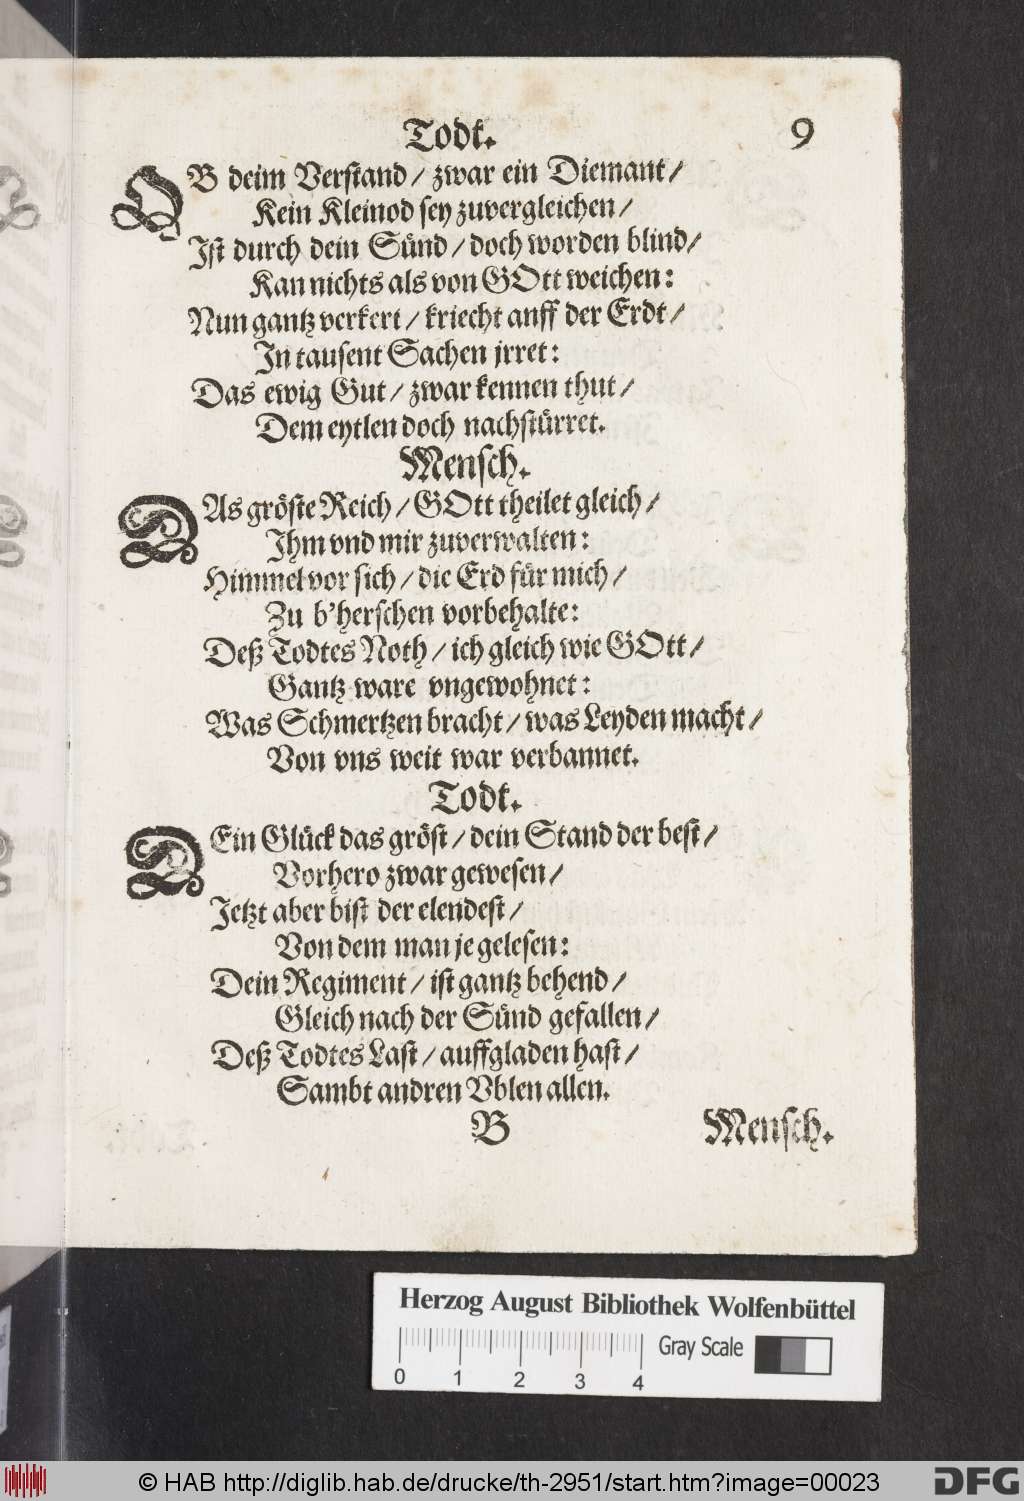 Todt.
9
OB deim Verstand / zwar ein Diemant /
Kein Kleinod sey zuvergleichen /
Ist durch dein Sünd / doch worden blind /
Kan nichts als von GOtt weichen:
Nun gantz verkert / kriecht auff der Erdt /
In tausent Sachen jrret:
Das ewig Gut / zwar kennen thut /
Dem eytlen doch nachstürret.
Mensch.
DAs gröste Reich / GOtt theilet gleich /
Ihm vnd mir zuverwalten:
Himmel vor sich / die Erd für mich /
Zu b'herschen vorbehalte:
Deß Todtes Noth / ich gleich wie GOtt /
Gantz ware vngewohnet:
Was Schmertzen bracht / was Leyden macht /
Von vns weit war verbannet.
Todt.
DEin Glück das gröst / dein Stand der best /
Vorhero zwar gewesen /
Jetzt aber bist der elendest /
Von dem man je gelesen:
Dein Regiment / ist gantz behend /
Gleich nach der Sünd gefallen /
Deß Todtes Last / auffgladen hast /
Sambt andren Vblen allen.
B
Mensch.
Herzog August Bibliothek Wolfenbüttel
Gray Scale
0 1 2 3 4
© HAB http://diglib.hab.de/drucke/th-2951/start.htm?image=00023
DFG